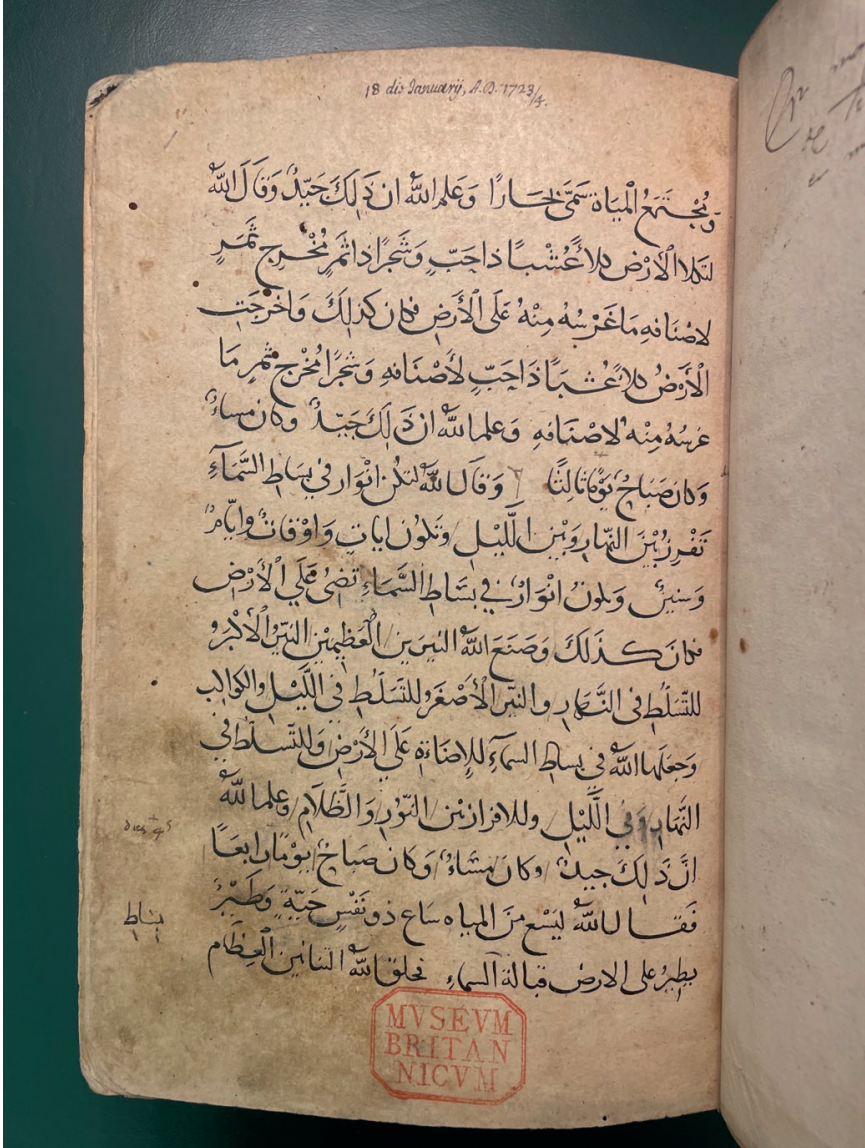 18 die Januarij, A.D. 1723/4.
وَمُجْتَمَعُ الْمِيَاهَ سَمَّى بَحَارًا وَعَلِمَ اللّٰه ان ذَلِكَ جَيّدٌ وَقَالَ اللّٰه
لتكلا الْأَرْض كلاً عُشْبًا ذا حَبّ وَشَجَرًا ذا ثَمَرٍ مُخْرِج ثَمَرٍ
لاصْنَافِهِ مَا غَرْسُهُ مِنْهُ عَلَى الْأَرْضِ فكان كذلِكَ وَاخْرَجَت
الْأَرْضُ كلاً عُشبًا ذَا حَبّ لأَصْنَافِهِ وَشَجَرًا مُخْرِج ثَمرٍ مَا
غرسُهُ مِنْه لاصْنَافِهِ وَعلم اللّٰه ان ذَلِكَ جَيّدٌ وكان مساءٌ
وَكان صَبَاحٌ يَوْمًا ثالثًا وَقَال اللّٰه لتكن انْوَار في بِسَاطِ السَّمَآءِ
تَفْرِز بَيْنَ النَّهَارِ وَبَيْنَ اللَّيْلِ وتكون اياتٍ وَاوْقَاتٌ وايّامٌ
وَسنينٌ وتكون انْوَارٌ في بسَاطِ السَّمَاءِ تضئ عَلَي الْأَرْض
فكَانَ كَذَلكَ وَصَنَعَ اللّٰه النيرَين الْعَظِيمَيْن النيّر الْأكْبر
للتسَلّطِ في النَّهَارِ والنير الْأَصْغَر للتسَلّطِ في اللَّيْلِ والكواكب
وَجعلَها اللّٰه في بساط السمآءِ للإضَاءَةِ عَلَي الأَرْضِ وَللتَّسلّط في
النَّهَارِ وَفي اللَّيْلِ وللافراز بَيْن النّوْرِ وَالظَّلَامِ وعلم اللّٰه
انَّ ذَلِكَ جيدٌ وكان مسَاءٌ وَكَانَ صَبَاحٌ يوْمًا رَابعًا
فَقَال اللّٰه ليَسْع منَ المياه سَاعٍ ذو نَفْسٍ حَيّةٍ وَطَيْرٌ
يطيرُ على الارض قبالة السماءِ فخلق اللّٰه التنانين الْعِظَام
dies 4ˢ
بساط
MVSEVM
BRITAN
NICVM